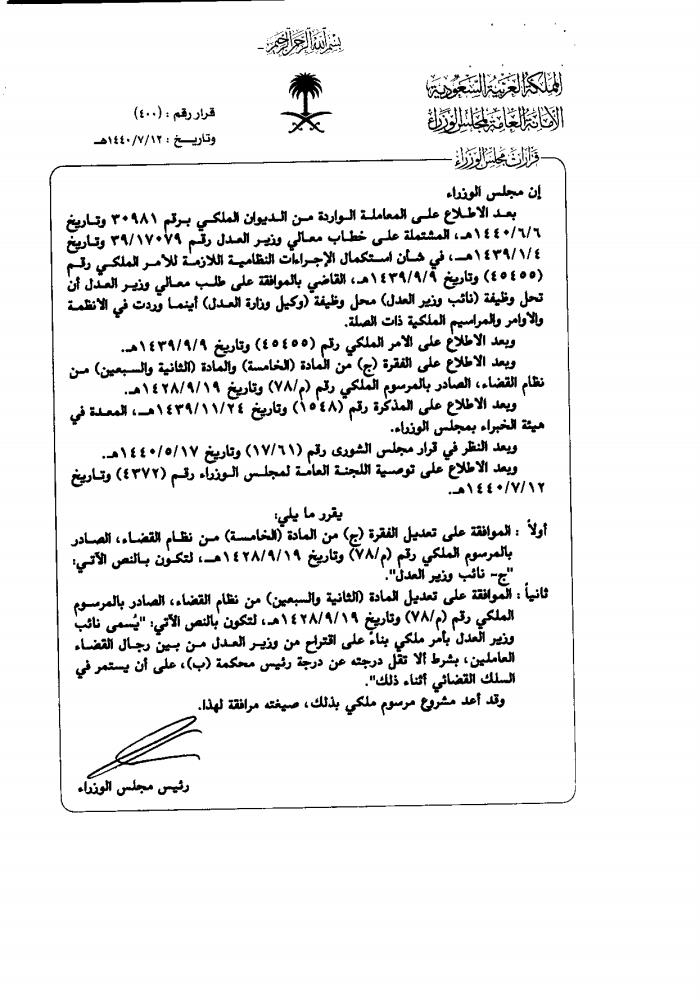 بسم الله الرحمن الرحيم
المملكة العربية السعودية
الأمانة العامة لمجلس الوزراء
قرار رقم : (٤٠٠)
وتاريخ : ١٤٤٠/٧/١٢هـ
قرارات مجلس الوزراء
إن مجلس الوزراء
بعد الاطلاع على المعاملة الواردة من الديوان الملكي برقم ٣٠٩٨١ وتاريخ
١٤٤٠/٦/٦هـ، المشتملة على خطاب معالي وزير العدل رقم ٣٩/١٧٠٧٩ وتاريخ
١٤٣٩/١/٤هـ، في شأن استكمال الإجراءات النظامية اللازمة للأمر الملكي رقم
(٤٥٤٥٥) وتاريخ ١٤٣٩/٩/٩هـ، القاضي بالموافقة على طلب معالي وزير العدل أن
تحل وظيفة (نائب وزير العدل) محل وظيفة (وكيل وزارة العدل) أينما وردت في الأنظمة
والأوامر والمراسيم الملكية ذات الصلة.
وبعد الاطلاع على الأمر الملكي رقم (٤٥٤٥٥) وتاريخ ١٤٣٩/٩/٩هـ.
وبعد الاطلاع على الفقرة (ج) من المادة (الخامسة) والمادة (الثانية والسبعين) من
نظام القضاء، الصادر بالمرسوم الملكي رقم (م/٧٨) وتاريخ ١٤٢٨/٩/١٩هـ.
وبعد الاطلاع على المذكرة رقم (١٥٤٨) وتاريخ ١٤٣٩/١١/٢٤هـ، المعدة في
هيئة الخبراء بمجلس الوزراء.
وبعد النظر في قرار مجلس الشورى رقم (١٧/٦١) وتاريخ ١٤٤٠/٥/١٧هـ.
وبعد الاطلاع على توصية اللجنة العامة لمجلس الوزراء رقم (٤٣٧٢) وتاريخ
١٤٤٠/٧/١٢هـ.
يقرر ما يلي:
أولاً : الموافقة على تعديل الفقرة (ج) من المادة (الخامسة) من نظام القضاء، الصادر
بالمرسوم الملكي رقم (م/٧٨) وتاريخ ١٤٢٨/٩/١٩هـ، لتكون بالنص الآتي:
"ج- نائب وزير العدل".
ثانياً : الموافقة على تعديل المادة (الثانية والسبعين) من نظام القضاء، الصادر بالمرسوم
الملكي رقم (م/٧٨) وتاريخ ١٤٢٨/٩/١٩هـ، لتكون بالنص الآتي: "يُسمى نائب
وزير العدل بأمر ملكي بناءً على اقتراح من وزير العدل من بين رجال القضاء
العاملين، بشرط ألا تقل درجته عن درجة رئيس محكمة (ب)، على أن يستمر في
السلك القضائي أثناء ذلك".
وقد أعد مشروع مرسوم ملكي بذلك، صيغته مرافقة لهذا.
رئيس مجلس الوزراء